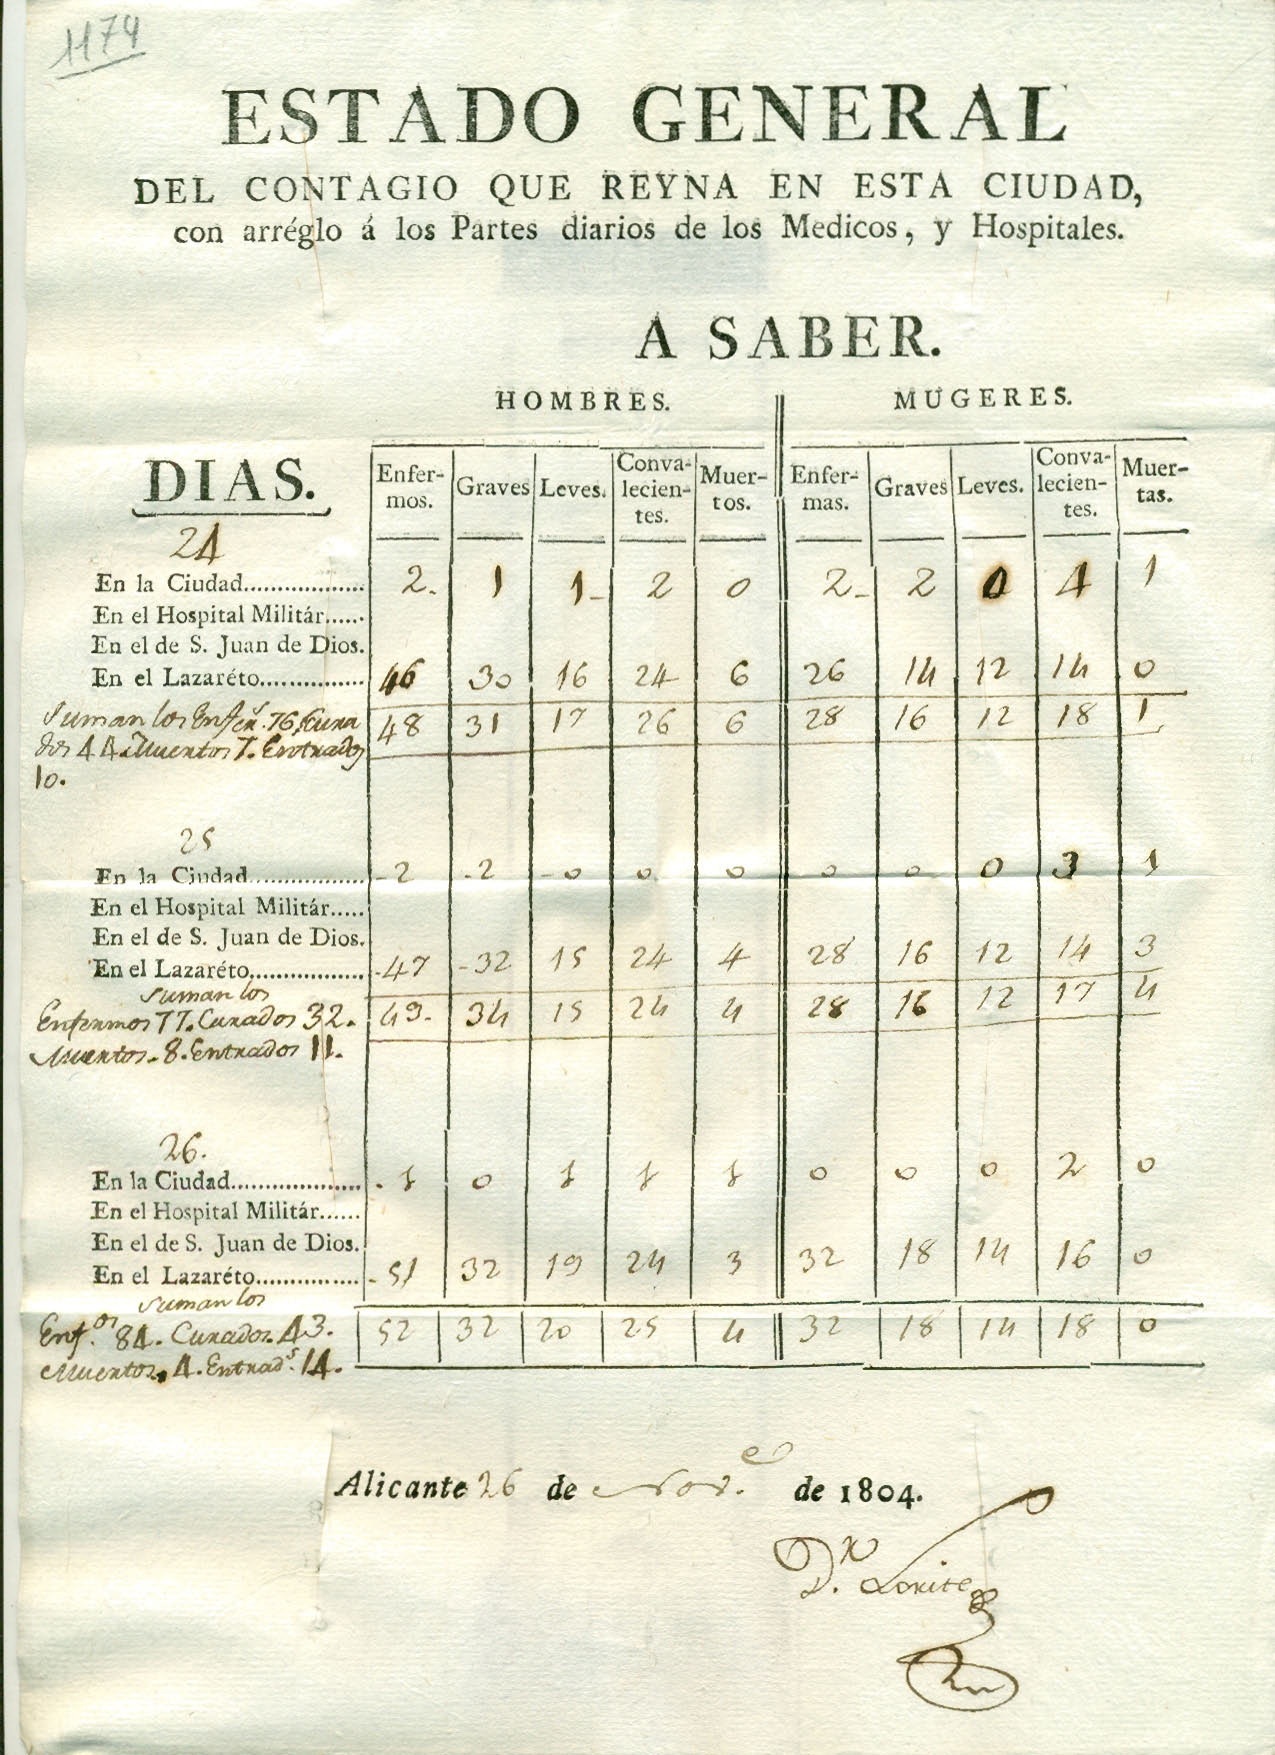 1174
ESTADO GENERAL
DEL CONTAGIO QUE REYNA EN ESTA CIUDAD,
con arréglo á los Partes diarios de los Medicos, y Hospitales.
A SABER.
HOMBRES. MUGERES.
DIAS. Enfer-mos. Graves Leves. Conva-lecien-tes. Muer-tos. Enfer-mas. Graves Leves. Conva-lecien-tes. Muer-tas.
24
En la Ciudad.................. 2. 1 1 2 0 2 2 0 4 1
En el Hospital Militár......
En el de S. Juan de Dios.
En el Lazaréto............... 46 30 16 24 6 26 14 12 14 0
Suman los Enf.en 76. Cura 48 31 17 26 6 28 16 12 18 1
dos 44. Muertos 7. Entrados
10.
25
En la Ciudad................. 2 2 0 0 0 0 0 0 3 1
En el Hospital Militár.....
En el de S. Juan de Dios.
En el Lazaréto................. 47 32 15 24 4 28 16 12 14 3
Suman los
Enfermos 77. Curados 32. 49. 34 15 24 4 28 16 12 17 4
Muertos. 8. Entrados 11.
26.
En la Ciudad.................... 1 0 1 1 1 0 0 0 2 0
En el Hospital Militár......
En el de S. Juan de Dios.
En el Lazaréto................ 51 32 19 24 3 32 18 14 16 0
Suman los
Enf.os 84. Curados. 43. 52 32 20 25 4 32 18 14 18 0
Muertos. 4. Entrad.s 14.
Alicante 26 de Nov.e de 1804.
D.n Lorite